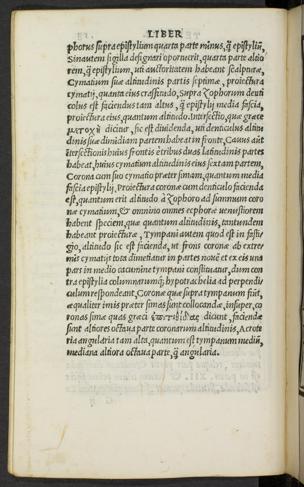 LIBER
phorus supra epistylium quarta parte minus, q̃ epistyliũ,
Sinautem sigilla designari oportuerit, quarta parte altio
rem, q̃ epistylium, uti auctoritatem habeant scalpturæ,
Cymatium suæ altitudinis partis septimæ, proiectura
cymatij, quanta eius crassitudo, Supra Zophorum denti
colus est faciendus tam altus, q̃ epistylij media fascia,
proiectura eius, quantum altitudo. Intersectio, quæ græce
μετοχὴ dicitur, sic est diuidenda, uti denticulus altitu
dinis suæ dimidiam partem habeat in fronte, Cauus aũt
itersectionis huius frontis è tribus duas latitudinis partes
habeat, huius cymatium altitudinis eius sextam partem,
Corona cum suo cymatio præter simam, quantum media
fascia epistylij, Proiectura coronæ cum denticulo facienda
est, quantum erit altitudo à Zophoro ad summum coro
næ cymatium, & omnino omnes ecphoræ uenustiorem
habent speciem, quæ quantum altitudinis, tantundem
habeant proiecturæ, Tympani autem quod est in fasti⸗
gio, altitudo sic est facienda, ut frons coronæ ab extre⸗
mis cymatijs tota dimetiatur in partes nouẽ et ex eis una
pars in medio cacumine tympani constituatur, dum con
tra epistylia columnarumq; hypotrachelia ad perpendi
culum respondeant, Coronæ quæ supra tympanum fiũt,
æqualiter imis præter simas sunt collocandæ, insuper, co
ronas simæ quas græci ἐπιτιθίδας dicunt, faciendæ
sunt altiores octaua parte coronarum altitudinis, Acrote
ria angularia tam alta, quantum est tympanum mediũ,
mediana altiora octaua parte, q̃ angularia.